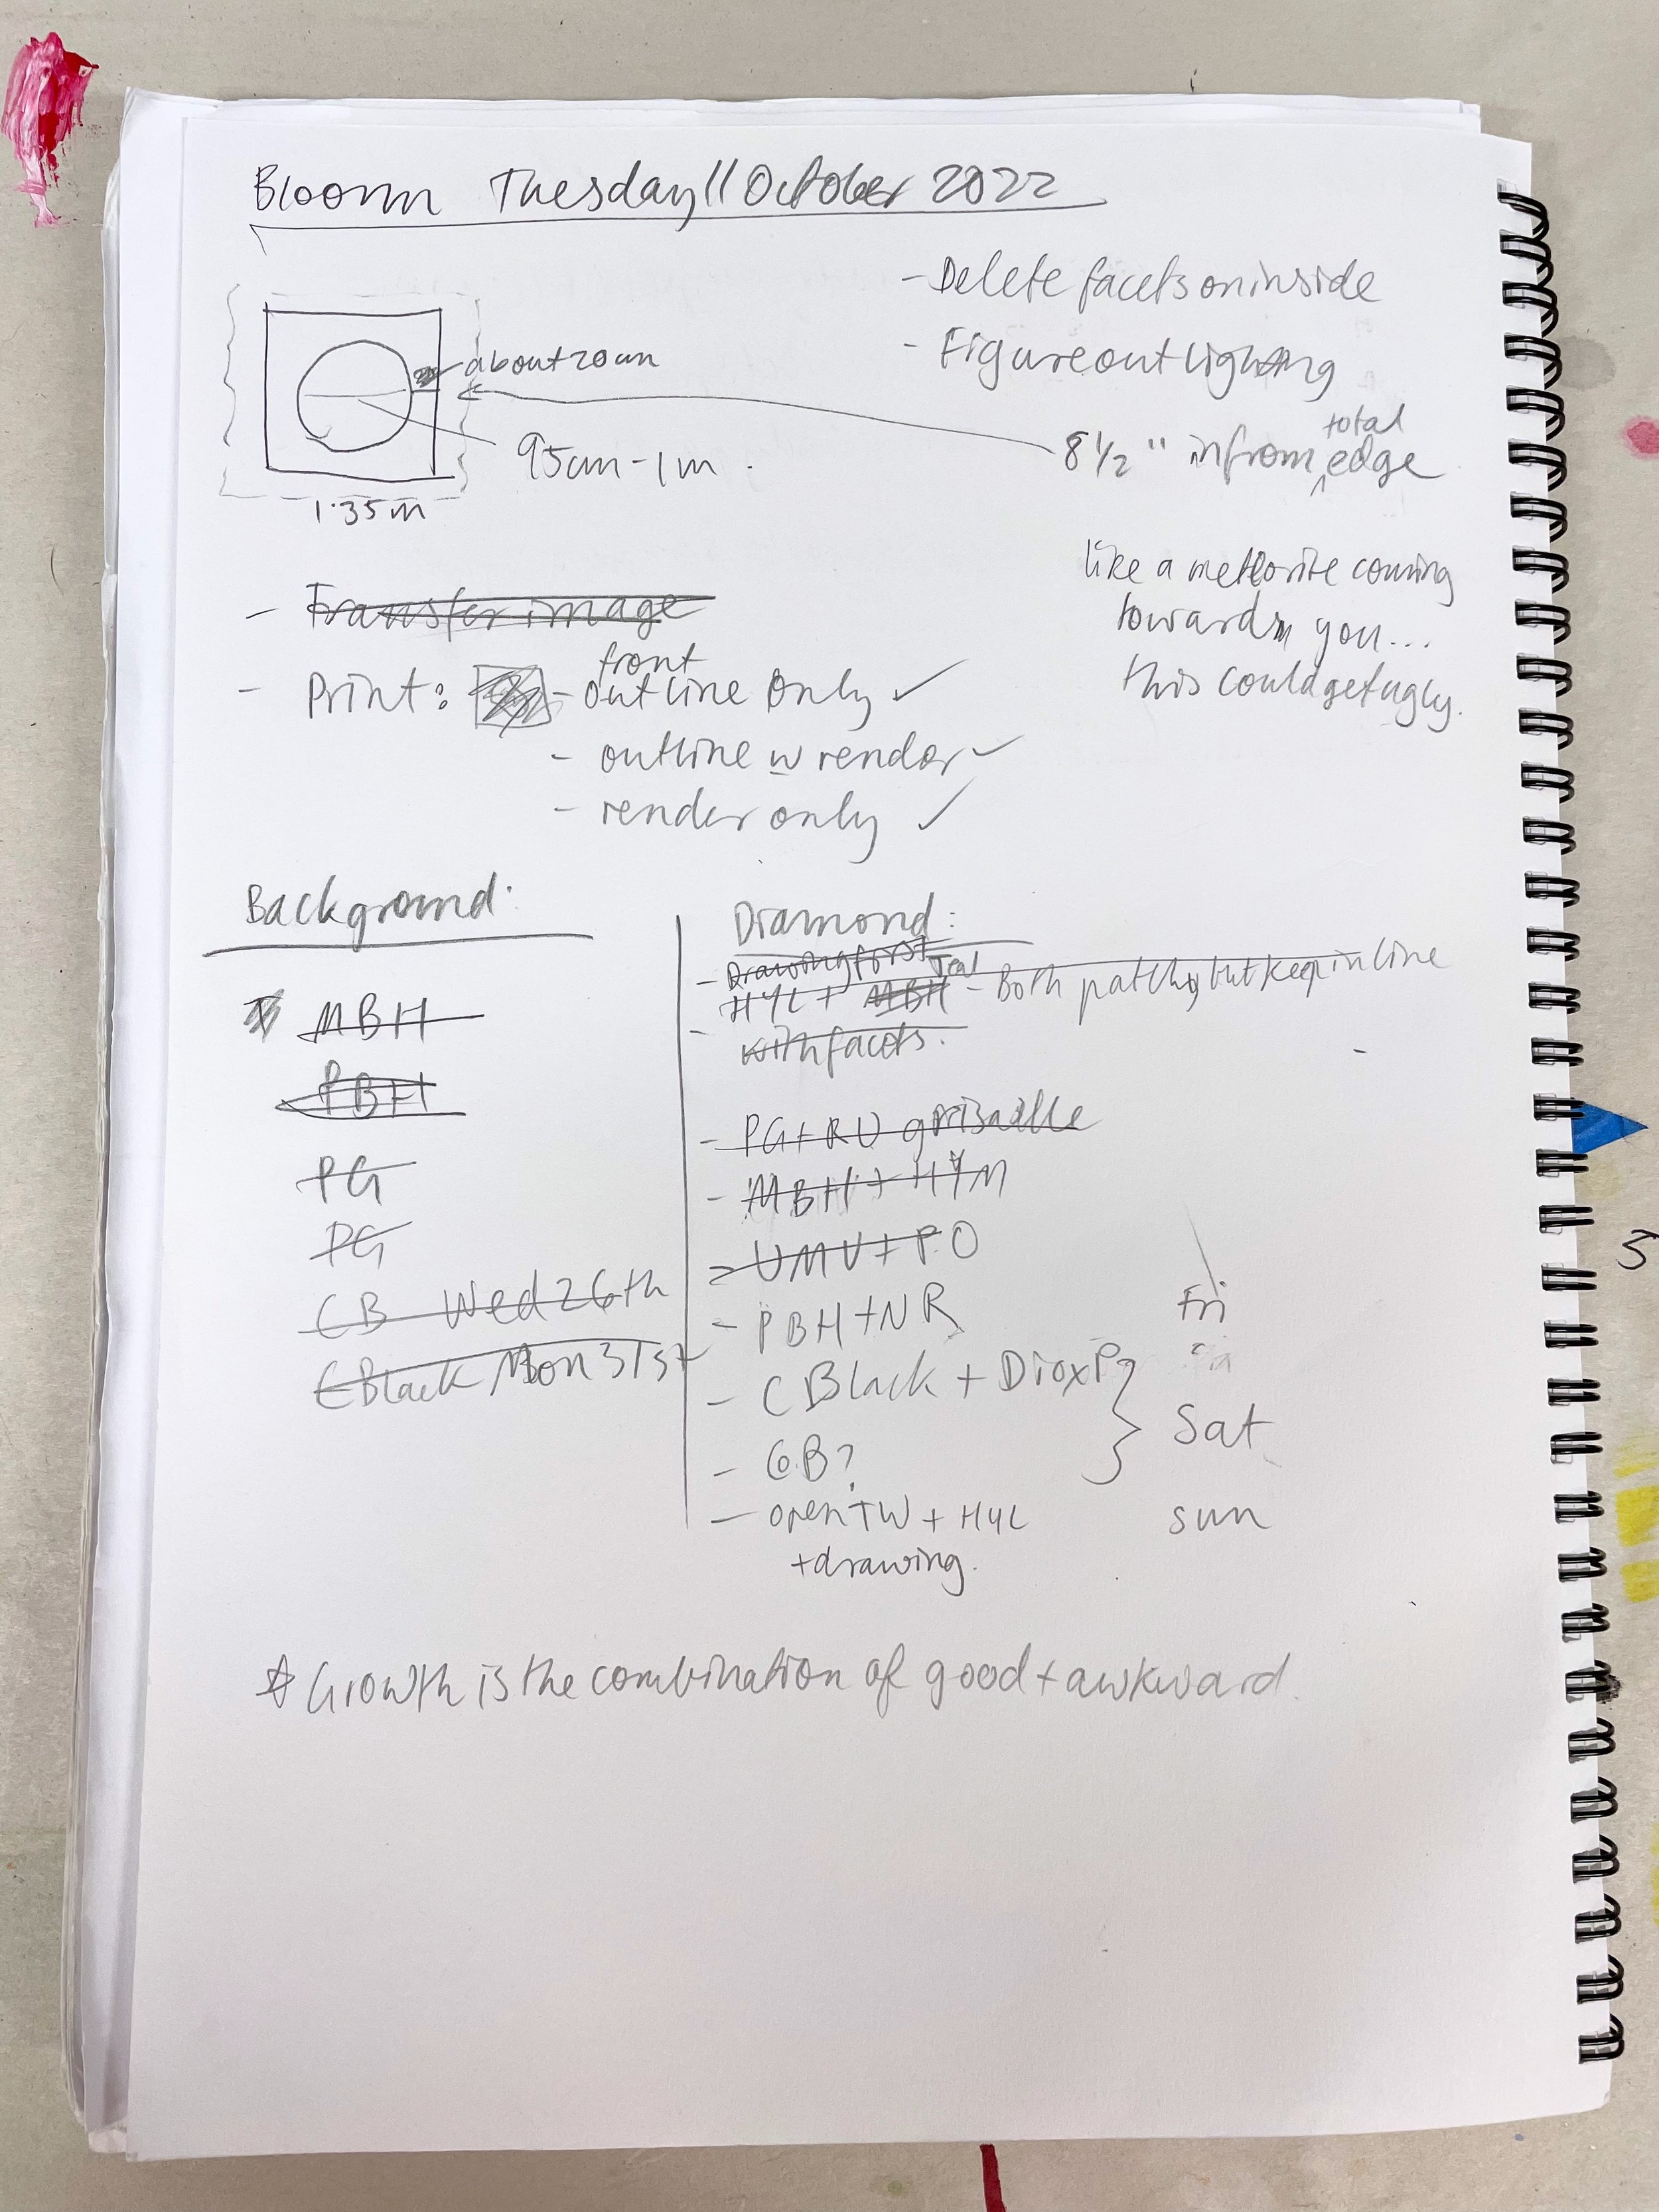 Bloom Tuesday 11 October 2022
- Delete facets on inside
- Figure out lighting
about 20cm
95cm - 1m.
8 1/2" in from total edge
1.35m
like a meteorite coming
towards you...
this could get ugly.
- Transfer image
- Print: - front outline only ✓
- outline w render ✓
- render only ✓
Background:
MBH
PBH
PG
PG
CB Wed 26th
CBlack Mon 31st
Diamond:
- Drawing first
- HYL + MBH Teal - Both patchy but keep in line
with facets.
- PG + RU grisaille
- MBH + HYM
- UMV + PO
- PBH + NR Fri
- CBlack + Diox P
- CB? Sat
- open TW + HYL Sun
+ drawing.
☆ Growth is the combination of good + awkward.
5